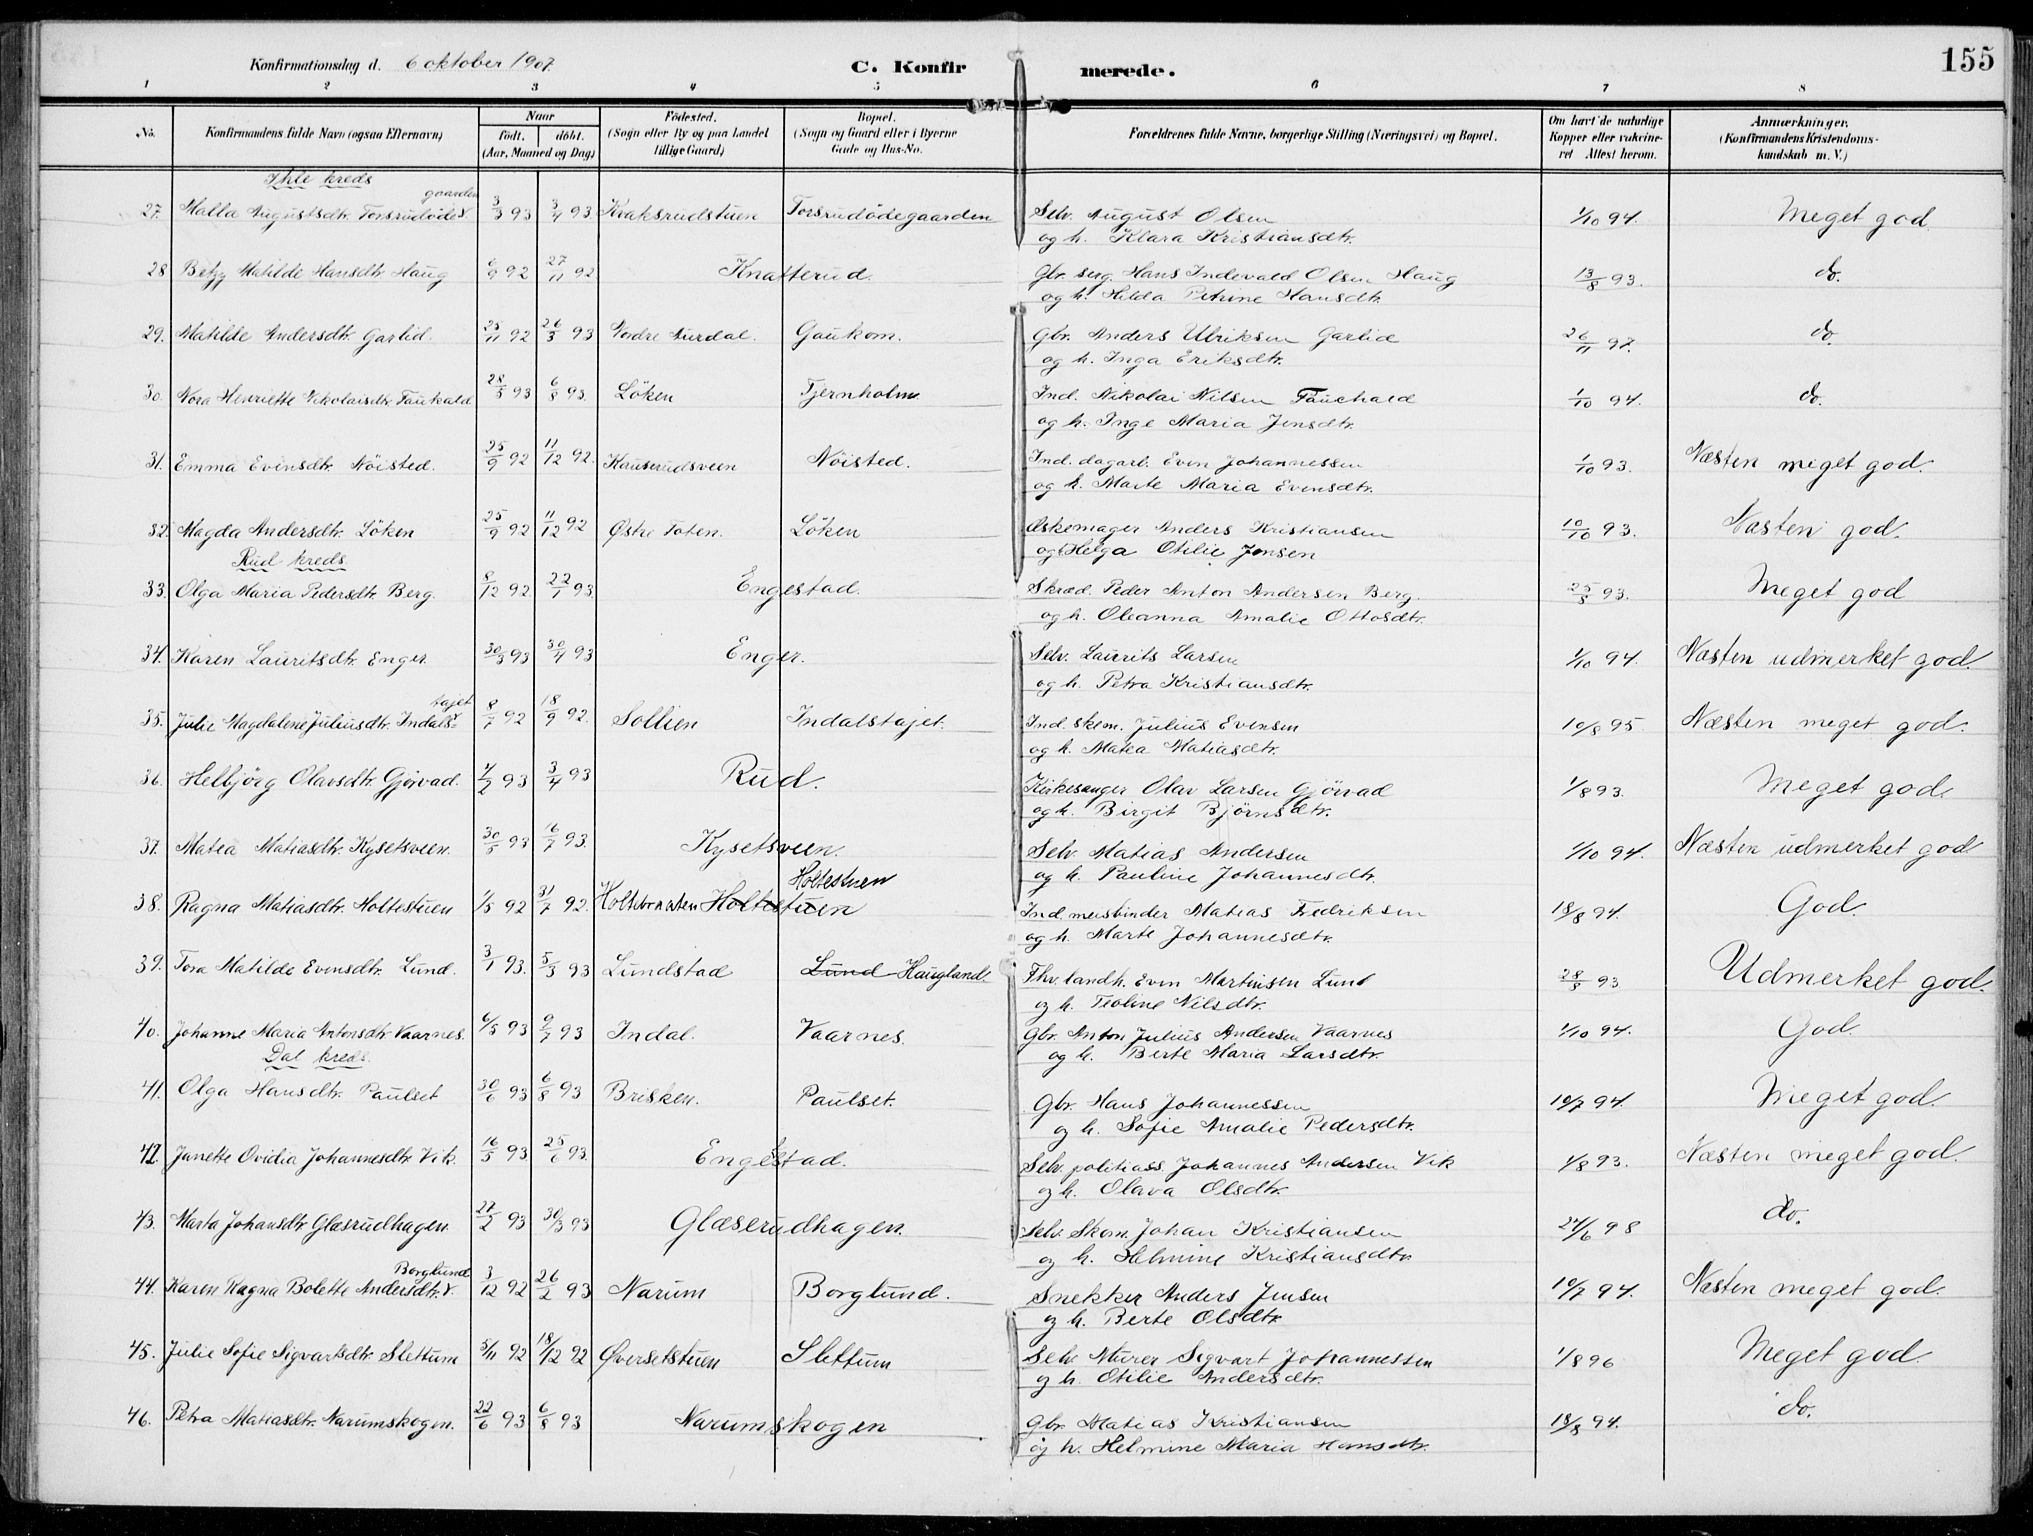 155
Konfirmationsdag d. 6 oktober 1907.
C. Konfirmerede.
1 2 3 4 5 6 7 8
No.
Konfirmandens fulde Navn (ogsaa Efternavn)
Naar
født. døbt.
(Aar, Maaned og Dag)
Födested.
(Sogn eller By og paa Landet
tillige Gaard)
Bopæl.
(Sogn og Gaard eller i Byerne
Gade og Hus-No.
Forældrenes fulde Navne, borgerlige Stilling (Næringsvei) og Bopæl.
Om havt de naturlige
Kopper eller vakcineret
Attest herom.
Anmærkninger.
(Konfirmandens Kristendomskundskab
m. V.)
Ihle kreds
27. Halla Augustsdtr. Torsrudödegaarden 3/3 93 3/4 93 Kvaksrudstuen Torsrudödegaarden Selv. August Olsen 1/10 94. Meget god
og h. Klara Kristiansdtr.
28 Betzy Matilde Hansdtr Haug 6/9 92 27/11 92 Knatterud. Gbr. serg. Hans Indevald Olsen Haug 13/8 93. do.
og h. Hilda Petrine Hansdtr.
29. Matilde Andersdtr. Garlid. 25/11 92 26/3 93 Nordre Aurdal. Gaukom. Gbr. Anders Ulriksen Garlid 26/11 97. do.
og h. Inga Eriksdtr.
30. Nora Henriette Nikolaisdtr Faukald 28/5 93 6/8 93. Löken Tjernholm Ind. Nikolai Nilsen Fauchald 1/10 94. do.
og h. Inge Maria Jensdtr.
31. Emma Evensdtr. Nöisted. 25/9 92 11/12 92. Kauserudsveen Nöisted. Ind. dagarb. Even Johannessen 1/10 93. Næsten meget god.
og h. Marte Maria Evensdtr.
32. Magda Andersdtr. Löken 25/9 92 11/12 92 Østre Toten. Löken Æskemager Anders Kristiansen 10/10 93. Næsten god.
og h Helga Otilie Jensen
Rud kreds.
33. Olga Maria Pedersdtr. Berg. 8/12 92 22/1 93 Engestad. Skræd. Peder Anton Andersen Berg. 25/8 93. Meget god
og h. Oleanna Amalie Ottosdtr.
34. Karen Lauritsdtr. Enger. 30/3 93 30/4 93 Enger. Selv. Laurits Larsen 1/10 94. Næsten udmerket god.
og h. Petra Kristiansdtr.
35. Julie Magdalene Juliusdtr. Indalstajet 8/7 92 18/9 92. Sollien Indalstajet. Ind. skom. Julius Evensen 10/8 95 Næsten meget god.
og h. Matea Matiasdtr.
36. Helbjörg Olavsdtr. Gjörvad. 4/2 93 3/4 93 Rud. Kirkesanger Olav Larsen Gjörvad 1/8 93. Meget god.
og h. Birgit Bjørnsdtr.
37. Matea Matiasdtr. Kysetsveen. 30/5 93 16/7 93. Kysetsveen. Selv. Matias Andersen 1/10 94. Næsten udmerket god
og h. Pauline Johannesdtr.
38. Ragna Matiasdtr. Holtestuen 1/5 92 31/7 92. Holtebraaten Holtestuen Holtestuen Ind. meisbinder Matias Fredriksen 18/8 94. God.
og h. Marte Johannesdtr.
39. Tora Matilde Evensdtr. Lund. 3/1 93. 5/3 93 Lundstad Lund Haugland. Fhv. landh. Even Martinsen Lund 28/8 93 Udmerket god.
og h. Teoline Nilsdtr.
40. Johanne Maria Antonsdtr Vaarnes. 6/5 93 9/7 93 Indal. Vaarnes. Gbr. Anton Julius Andersen Vaarnes 1/10 94. God.
og h. Berte Maria Larsdtr.
Dal kreds.
41. Olga Hansdtr. Paulset 30/6 93 6/8 93 Brisken. Paulset. Gbr. Hans Johannessen 10/7 94. Meget god.
og h. Sofie Amalie Pedersdtr.
42. Janette Ovidia Johannesdtr Vik. 16/5 93 25/6 93. Engestad. Selv. politiass. Johannes Andersen Vik 1/8 93. Næsten meget god.
og h. Olava Olsdtr.
43. Marta Johansdtr. Glæsrudhagen. 27/2 93 30/3 93 Glæserudhagen. Selv. Skom. Johan Kristiansen 24/6 98 do.
og h. Helmine Kristiansdtr
44. Karen Ragna Bolette Andersdtr. Borglund 3/12 92 26/2 93 Narum Borglund. Snekker Anders Jensen 10/7 94. Næsten meget god.
og h. Berte Olsdtr
45. Julie Sofie Sigvartsdtr. Slettum 5/11 92 18/12 92 Øversetstuen Slettum Selv. Murer Segvart Johannessen 1/8 96 Meget god.
og h. Otilie Andersdtr.
46. Petra Matiasdtr. Narumskogen. 22/6 93 6/8 93 Narumskogen Gbr. Matias Kristiansen 18/8 94. do.
og h. Helmine Maria Hansdtr.